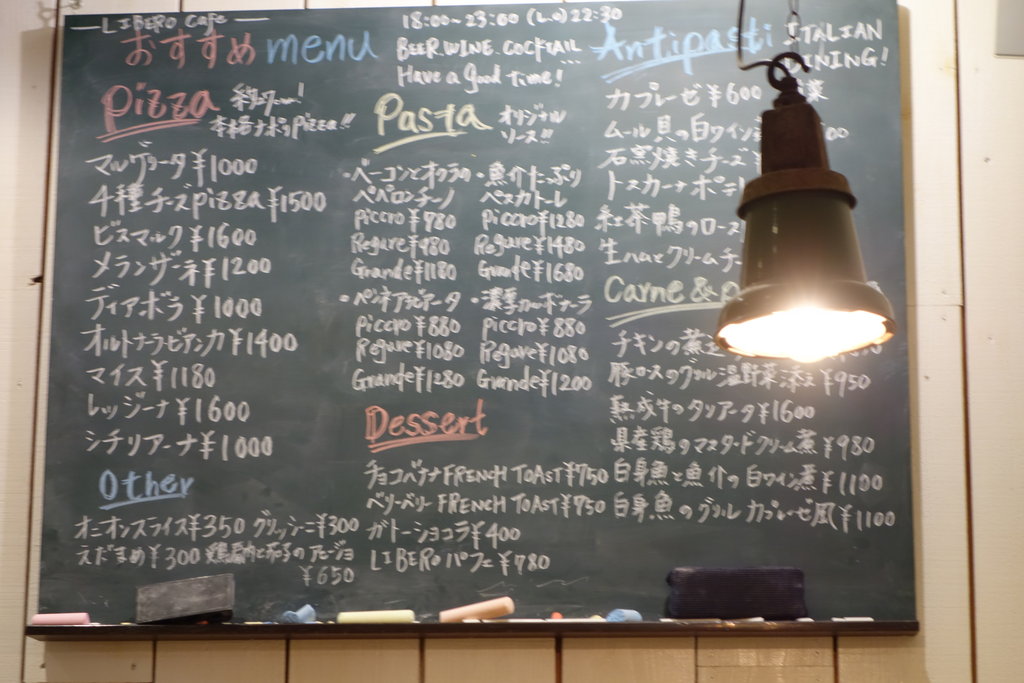 LIBERO Cafe
おすすめ menu
18:00~23:00 (L.o) 22:30
BEER.WINE.COCKTAIL
Have a good time!
Pizza
本格ナポリPizza!!
マルゲリータ¥1000
4種チーズpizza¥1500
ビスマルク¥1600
メランザーネ¥1200
ディアボラ¥1000
オルトナーラビアンカ¥1400
マイス¥1180
レッジーナ¥1600
シチリアーナ¥1000
Other
オニオンスライス¥350 グリッシーニ¥300
えだまめ¥300 茄子のアヒージョ
¥650
Pasta
オリジナル
ソース!!
・ベーコンとオクラの
ペペロンチーノ
Piccro¥780
Regare¥980
Grande¥1180
・魚介たっぷり
ペスカトーレ
Piccro¥1280
Regare¥1480
Grande¥1680
・ペンネアラビアータ
Piccro¥880
Regare¥1080
Grande¥1280
・濃厚カルボナーラ
Piccro¥880
Regare¥1080
Grande¥1200
Dessert
チョコバナナFRENCH TOAST¥750
ベリーベリーFRENCH TOAST¥750
ガトーショコラ¥400
LIBEROパフェ¥780
Antipasti
ITALIAN
DINING!
カプレーゼ¥600
ムール貝の白ワイン
石窯焼きチーズ
トスカーナポテ
紅茶鴨のロース
生ハムとクリームチ
Carne &
チキンの煮
豚ロースのグリル温野菜添え¥950
熟成牛のタリアータ¥1600
県産鶏のマスタードクリーム煮¥980
白身魚と魚介の白ワイン煮¥1100
白身魚のグリルカプレーゼ風¥1100